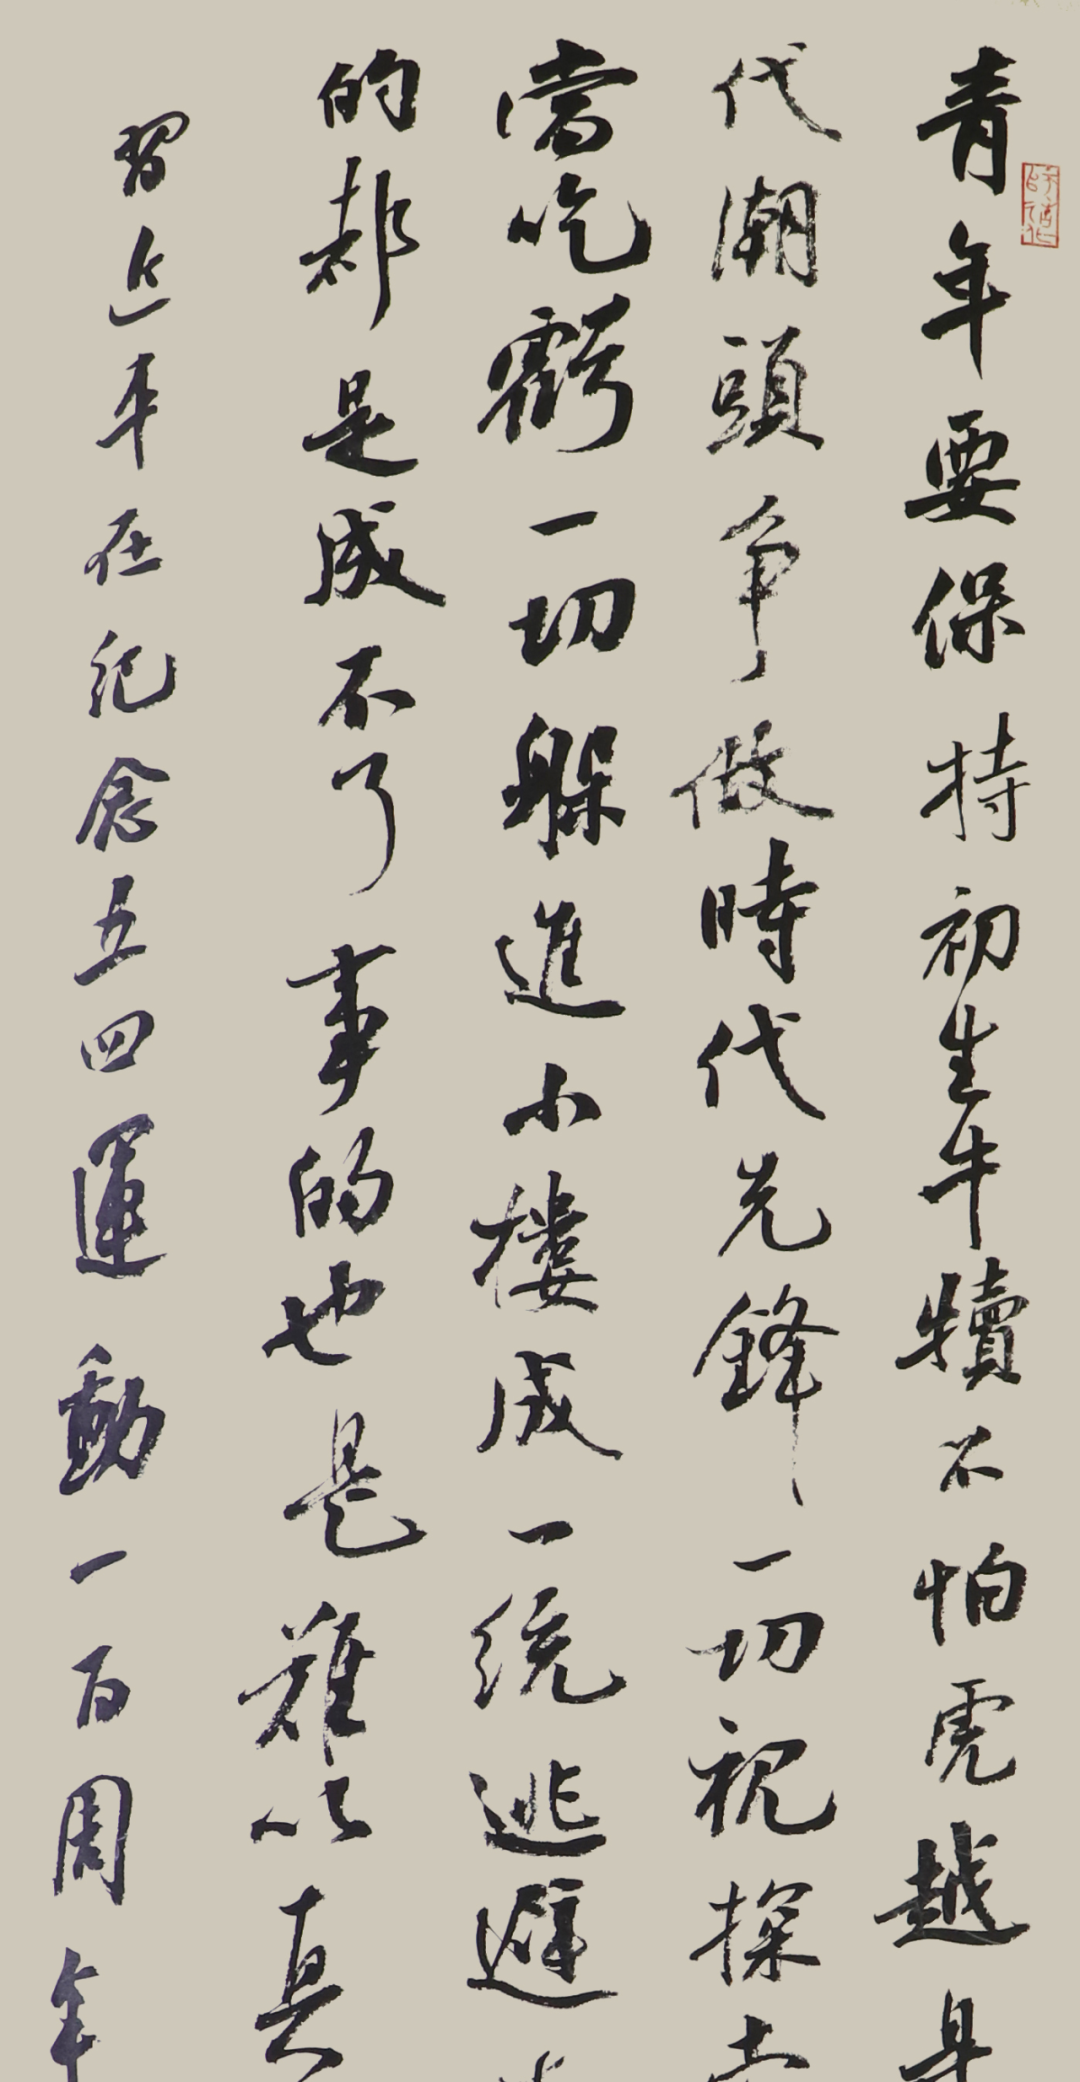 青年要保持初生牛犊不怕虎越是
代潮頭争做時代先鋒一切視探索
當吃虧一切躲進小樓成一统逃避
的都是成不了事的也是難以真
習近平在纪念五四運動一百周年